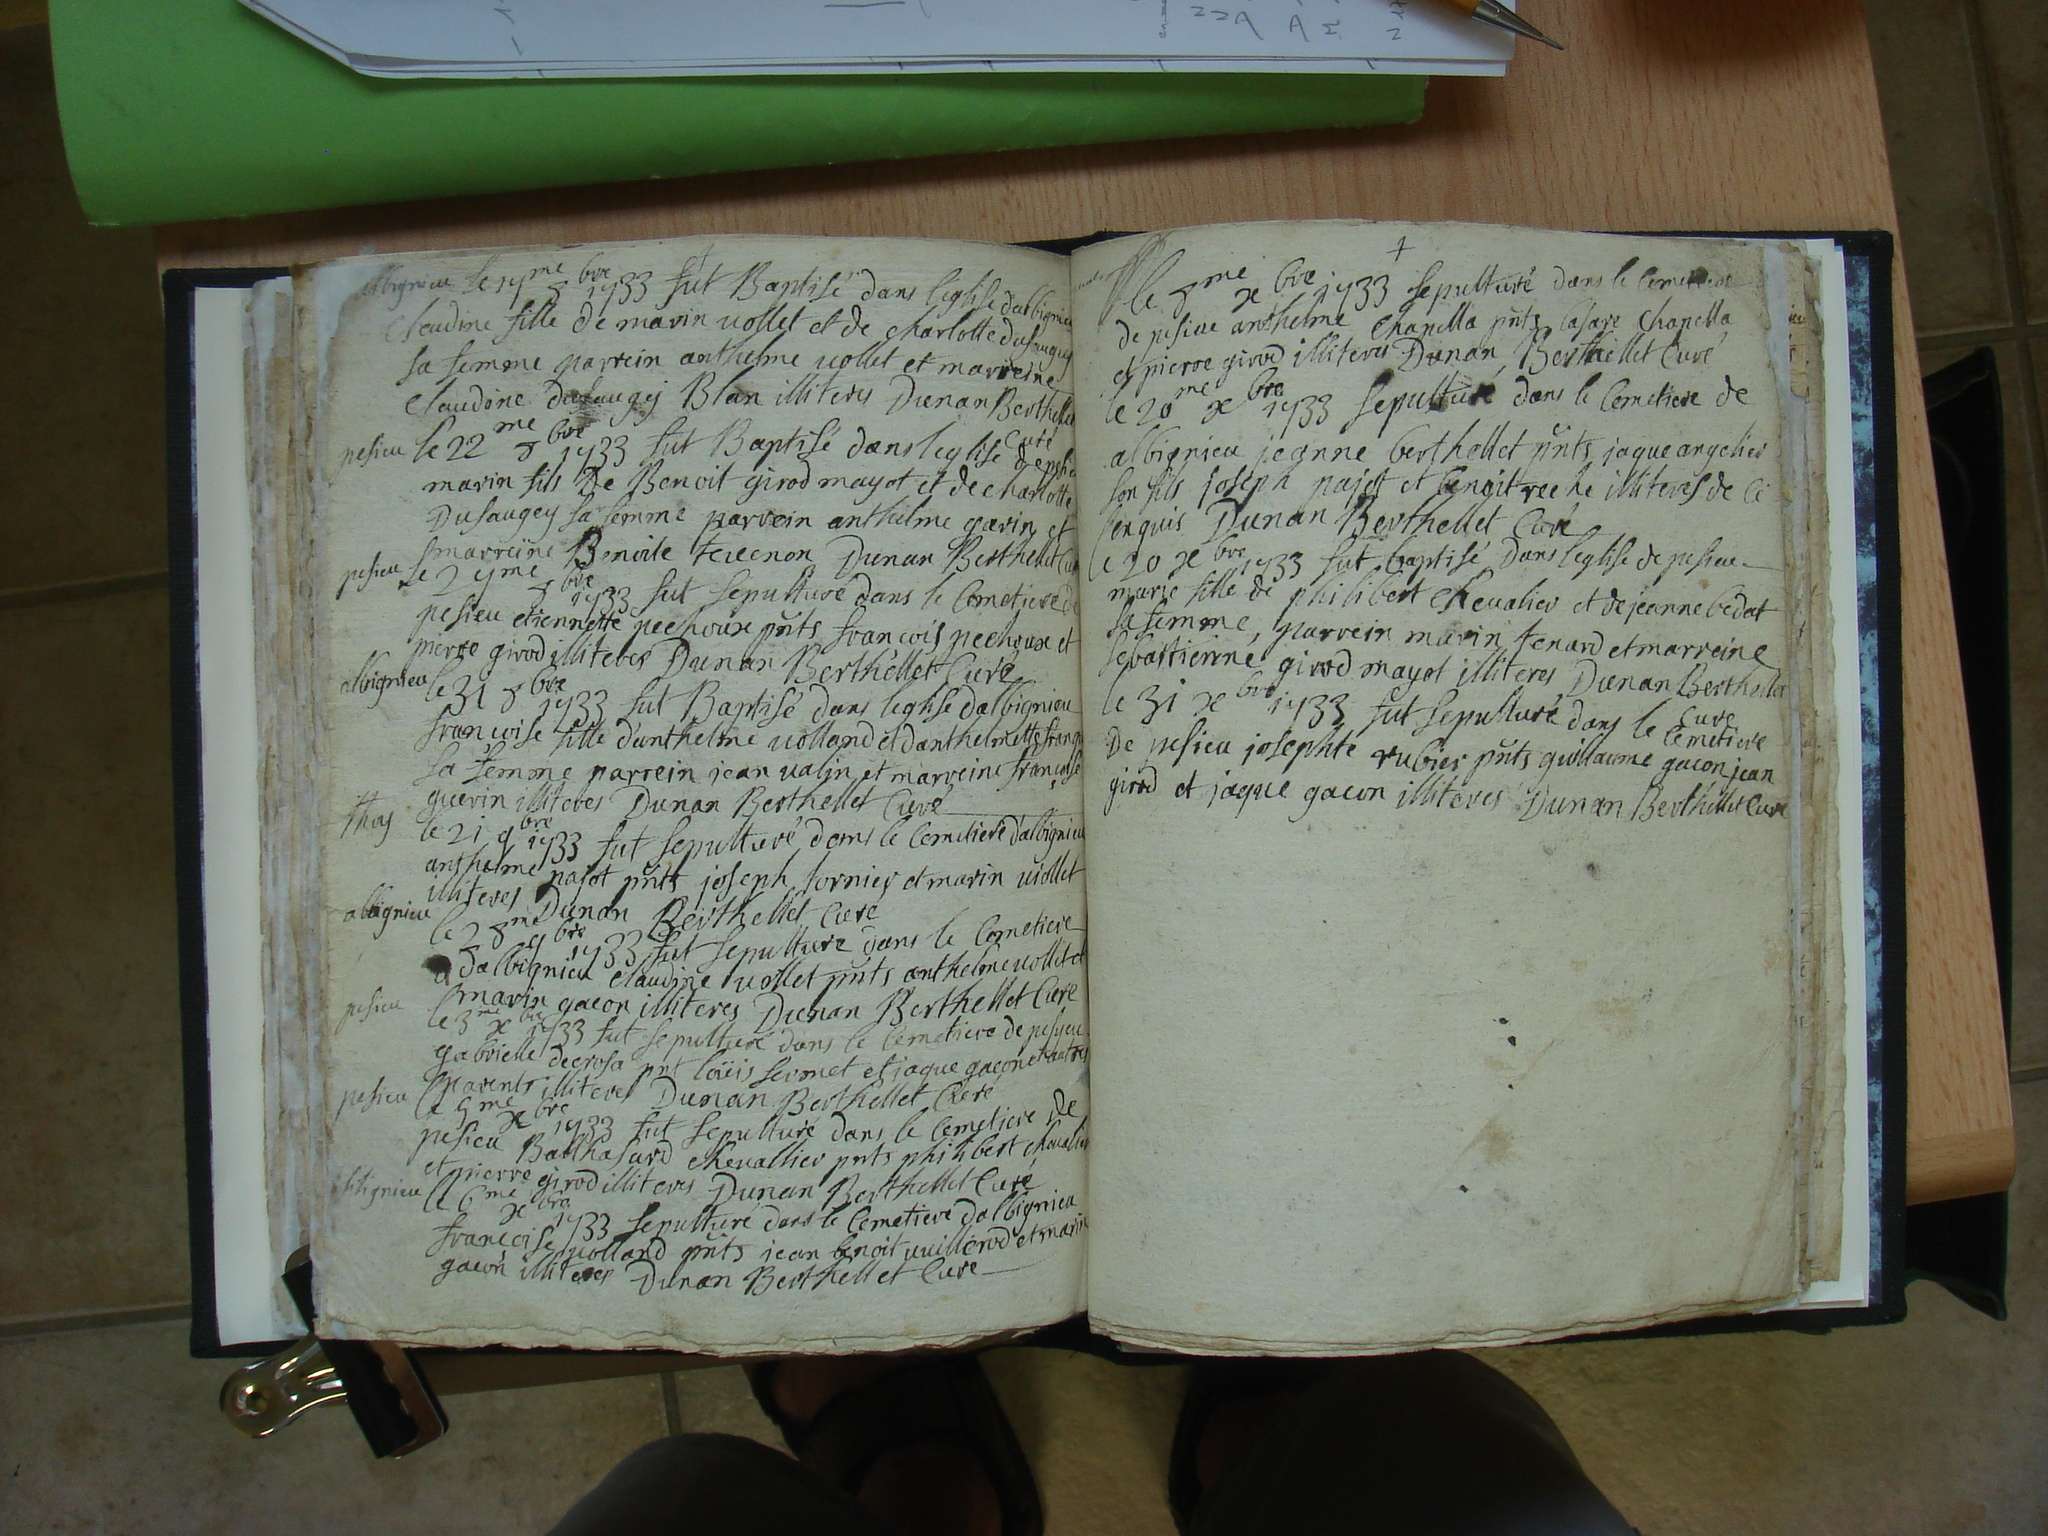 albignieu le 17me 8bre 1733 fut Baptisé dans leglise dalbignieu
Claudine fille de marin vollet et de charlotte dusaugey
sa femme parrein anthelme vollet et marreine
Claudine dusaugey Blan illiteres Dunan Berthellet
Curé
pesieu le 22me 8bre 1733 fut Baptisé dans leglise de
marin fils de Benoit girod mayot et de charlotte
Dusaugey sa femme parrein anthelme garin et
marreine Benoite Dunan Berthellet Curé
pesieu le 27me 8bre 1733 fut sepulturé dans le Cemetiere de
pesieu etiennette pechoux pnts françois pechoux et
pierre girod illiteres Dunan Berthellet Curé
albignieu le 31 8bre 1733 fut Baptisé dans leglise dalbignieu
françoise fille d'anthelme volland et danthelmette
sa femme parrein jean valin et marreine françoise
guerin illiteres Dunan Berthellet Curé
thoy le 21 9bre 1733 fut sepulturé dans le Cemetiere dalbignieu
anthelme pajot pnts joseph fornier et marin viollet
illiteres Dunan Berthellet Curé
albignieu le 28me 9bre 1733 fut sepulturé dans le Cemetiere
dalbignieu Claudine vollet pnts anthelme vollet et
marin gacon illiteres Dunan Berthellet Curé
pesieu le 3me xbre 1733 fut sepulturé dans le Cemetiere de pesieu
gabrielle decrosa pnt loüis sermet et jaque gacon et autres
parents illiteres Dunan Berthellet Curé
pesieu le 5me xbre 1733 fut sepulturé dans le Cemetiere de
pesieu Balthasard chevallier pnts philibert chevalier
et pierre girod illiteres Dunan Berthellet Curé
albignieu le 6me xbre 1733 sepulturé dans le Cemetiere dalbignieu
françoise volland pnts jean benoit vuillerod et marin
gacon illiteres Dunan Berthellet Curé
le 8me xbre 1733 sepulturé dans le Cemetiere
de pesieu anthelme Chapella pnts Chapella
et pierre girod illiteres Dunan Berthellet Curé
le 20me xbre 1733 sepulturé dans le Cemetiere de
albignieu jeanne berthellet pnts jaque angelier
son fils joseph pajot et benoit illiteres de ce
enquis Dunan Berthellet Curé
le 20 xbre 1733 fut baptisé dans leglise de pesieu
marie fille de philibert Chevalier et de jeanne bedat
sa femme, parrein marin tenard et marreine
sebastienne girod mayot illiteres Dunan Berthellet
Curé
le 31 xbre 1733 fut sepulturé dans le Cemetiere
De pesieu josephte rubier pnts guillaume gacon jean
girod et jaque gacon illiteres Dunan Berthellet Curé